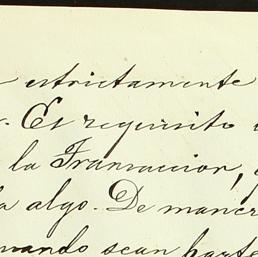 estrictamente
. Es requisito
la Transaccion,
algo. De maner
uando sean parte